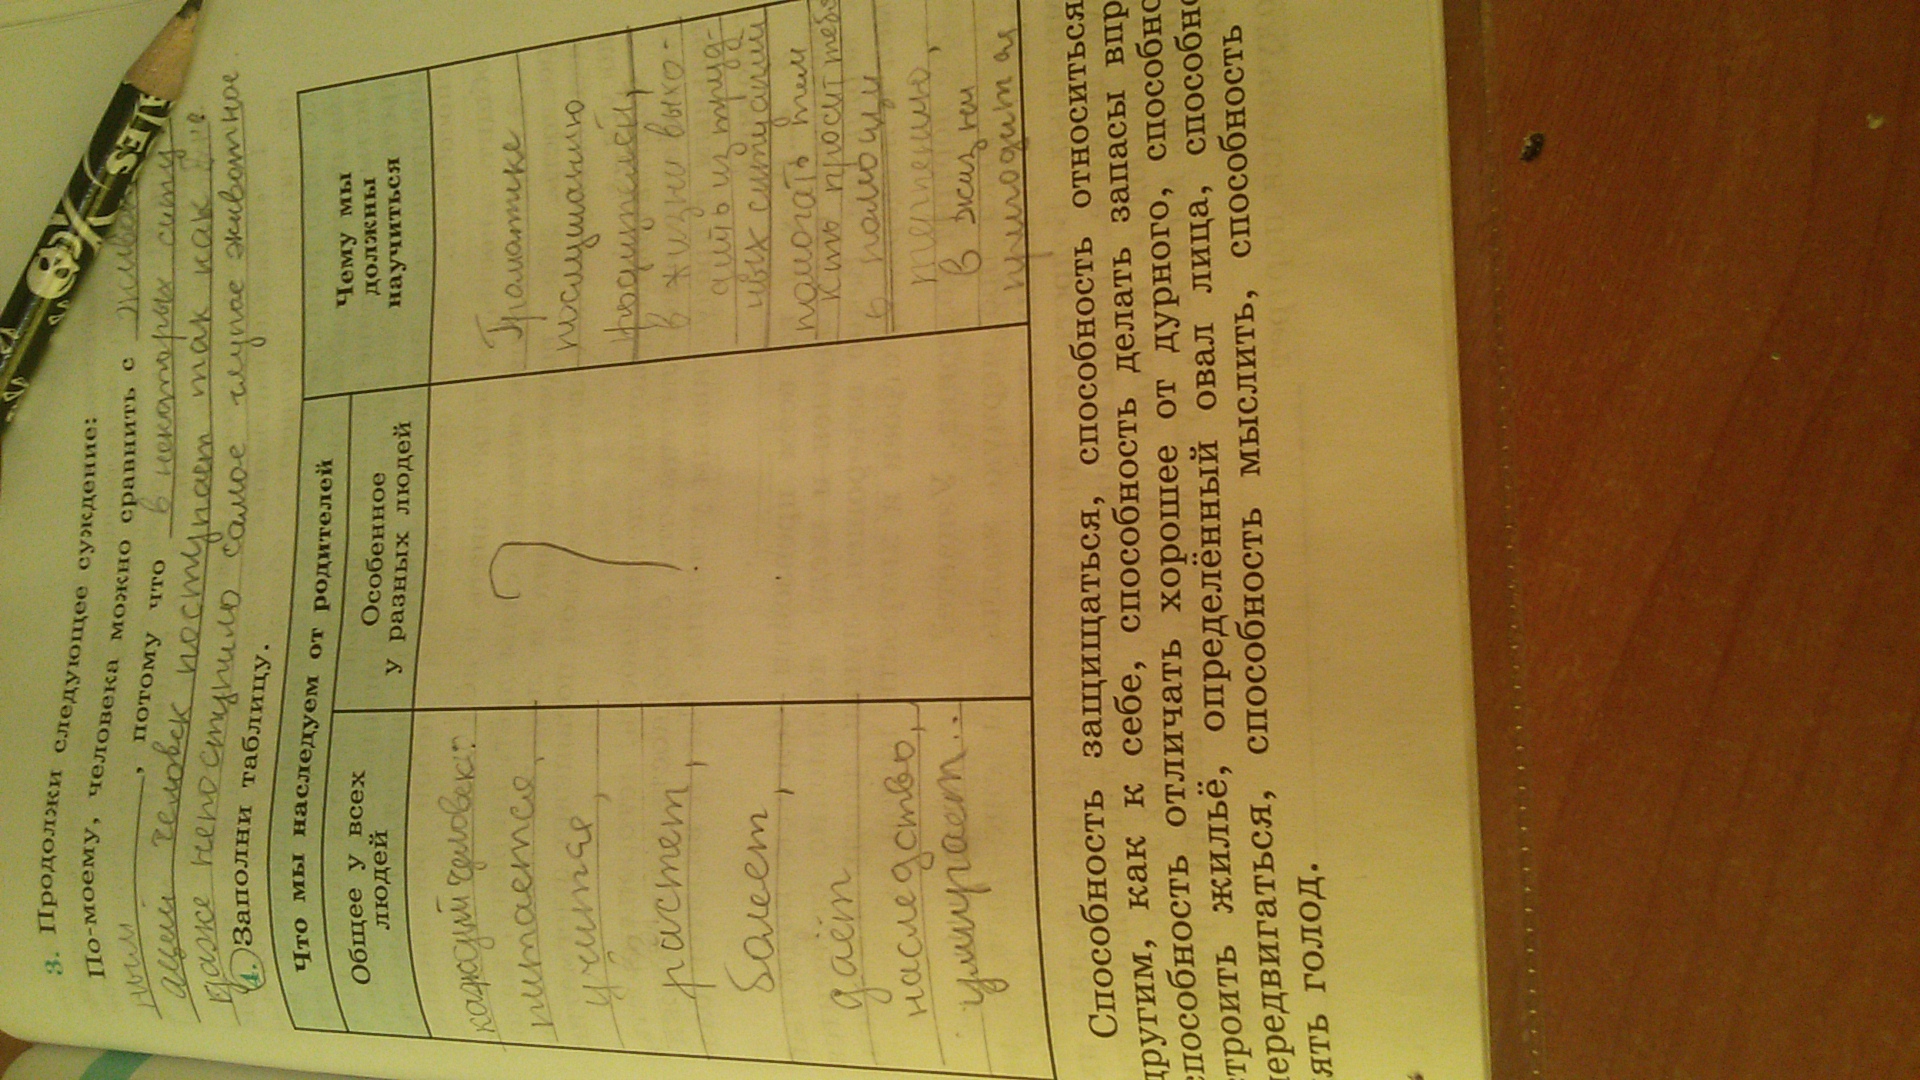 3. Продолжи следующее суждение:
По-моему, человека можно сравнить с
ным, потому что в некоторых ситу
ации человек поступает так как
даже не поступило самое глупое животное.
4. Заполни таблицу.
Что мы наследуем от родителей
Чему мы
должны
научиться
Общее у всех
людей
Особенное
у разных людей
каждый человек:
питается,
учится,
растет,
болеет,
даёт
наследство,
умирает..
?
Грамотке
послушанию
родителей,
в жизни выхо-
дить из труд-
ных ситуаций
помогать тем
кто просит тебя
о помощи
терпению,
в жизни
пригодится
Способность защищаться, способность относиться
другим, как к себе, способность делать запасы впр
способность отличать хорошее от дурного, способно
троить жильё, определённый овал лица, способно
передвигаться, способность мыслить, способность
ять голод.